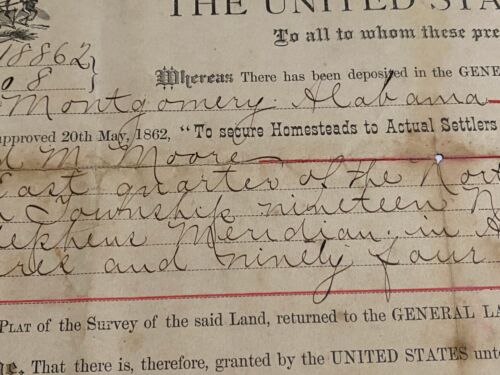 THE UNITED STA
18862
To all to whom these pre
08
Whereas There has been deposited in the GENE
Montgomery Alabama
approved 20th May, 1862, "To secure Homesteads to Actual Settlers
d M. Moore
East quarter of the Nort
Township nineteen N
tephens Meridian in A
ree and ninety four
PLAT of the Survey of the said Land, returned to the GENERAL LA
That there is, therefore, granted by the UNITED STATES unto